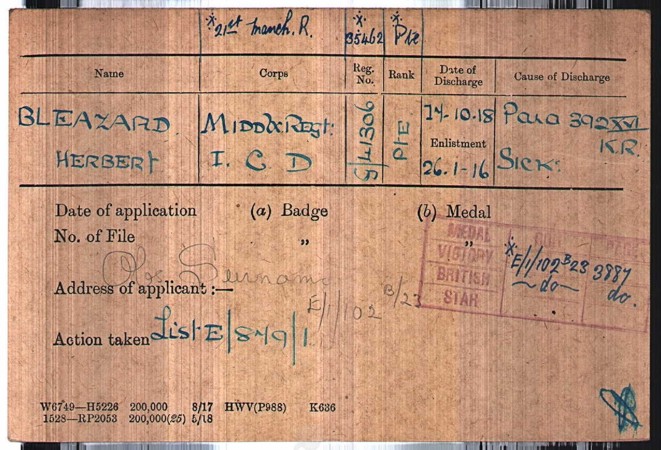 * 21st Manch. R. * 35462 * Pte
Name Corps Reg. No. Rank Date of Discharge Cause of Discharge
BLEAZARD MIDD'X REGT: G/41306 PTE 14-10-18 Para 392 XVI
Enlistment K.R.
HERBERT I. C. D 26.1-16 SICK.
Date of application (a) Badge (b) Medal
No. of File " "
MEDAL
VICTORY * E/1/102 B 23 3887
BRITISH - do - do.
STAR
Address of applicant :—
E/1/102 B/23
Action taken List E/849/1
W6749—H5226 200,000 8/17 HWV(P988) K636
1528—RP2053 200,000(25) 5/18